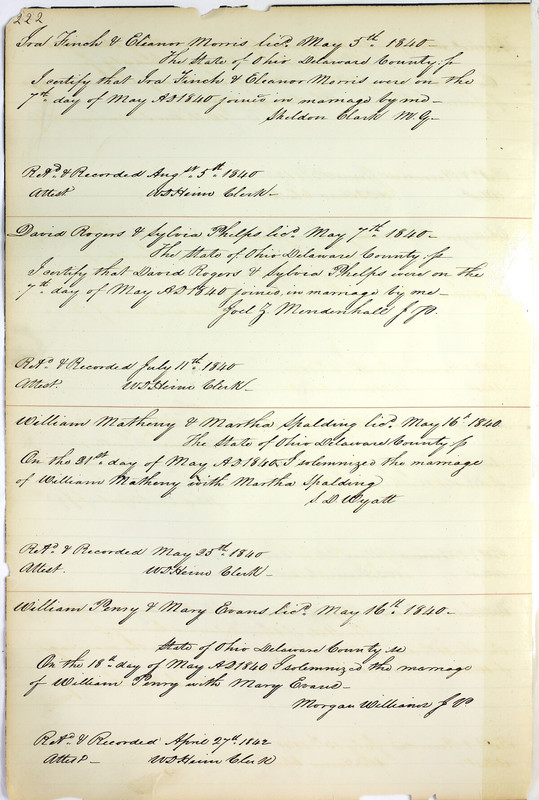 222
Ira Finch & Eleanor Morris licd. May 5th. 1840-
The State of Ohio Delaware County, ss
I certify that Ira Finch & Eleanor Morris were on the
7th. day of May AD 1840 joined in marriage by me-
Sheldon Clark M.G.
Retd. & Recorded Augst. 5th 1840
Attest W.D. Heim Clerk-
David Rogers & Sylvia Phelps licd. May 7th. 1840-
The State of Ohio Delaware County, ss
I certify that David Rogers & Sylvia Phelps were on the
7th day of May AD 1840 joined in marriage by me-
Joel Z. Mendenhall J.P.
Retd. & Recorded July 11th 1840
Attest. W.D. Heim Clerk-
William Matheny & Martha Spalding licd. May 16th 1840.
The State of Ohio Delaware County ss
On the 21st. day of May AD 1840, I solemnized the marriage
of William Matheny with Martha Spalding
S. D. Wyatt
Retd. & Recorded May 25th 1840
Attest. W.D. Heim Clerk-
William Penry & Mary Evans licd. May 16th. 1840-
State of Ohio Delaware County ss
On the 18th day of May AD 1840 I solemnized the marriage
of William Penry with Mary Evans-
Morgan Williams J P.
Retd. & Recorded April 27th. 1842
Attest- W.D. Heim Clerk